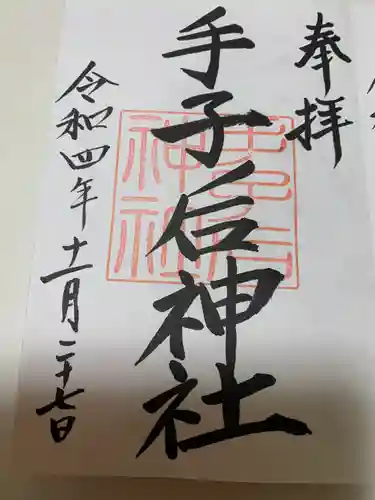 奉拝
手子后神社
令和四年十一月二十七日
手子后
神社